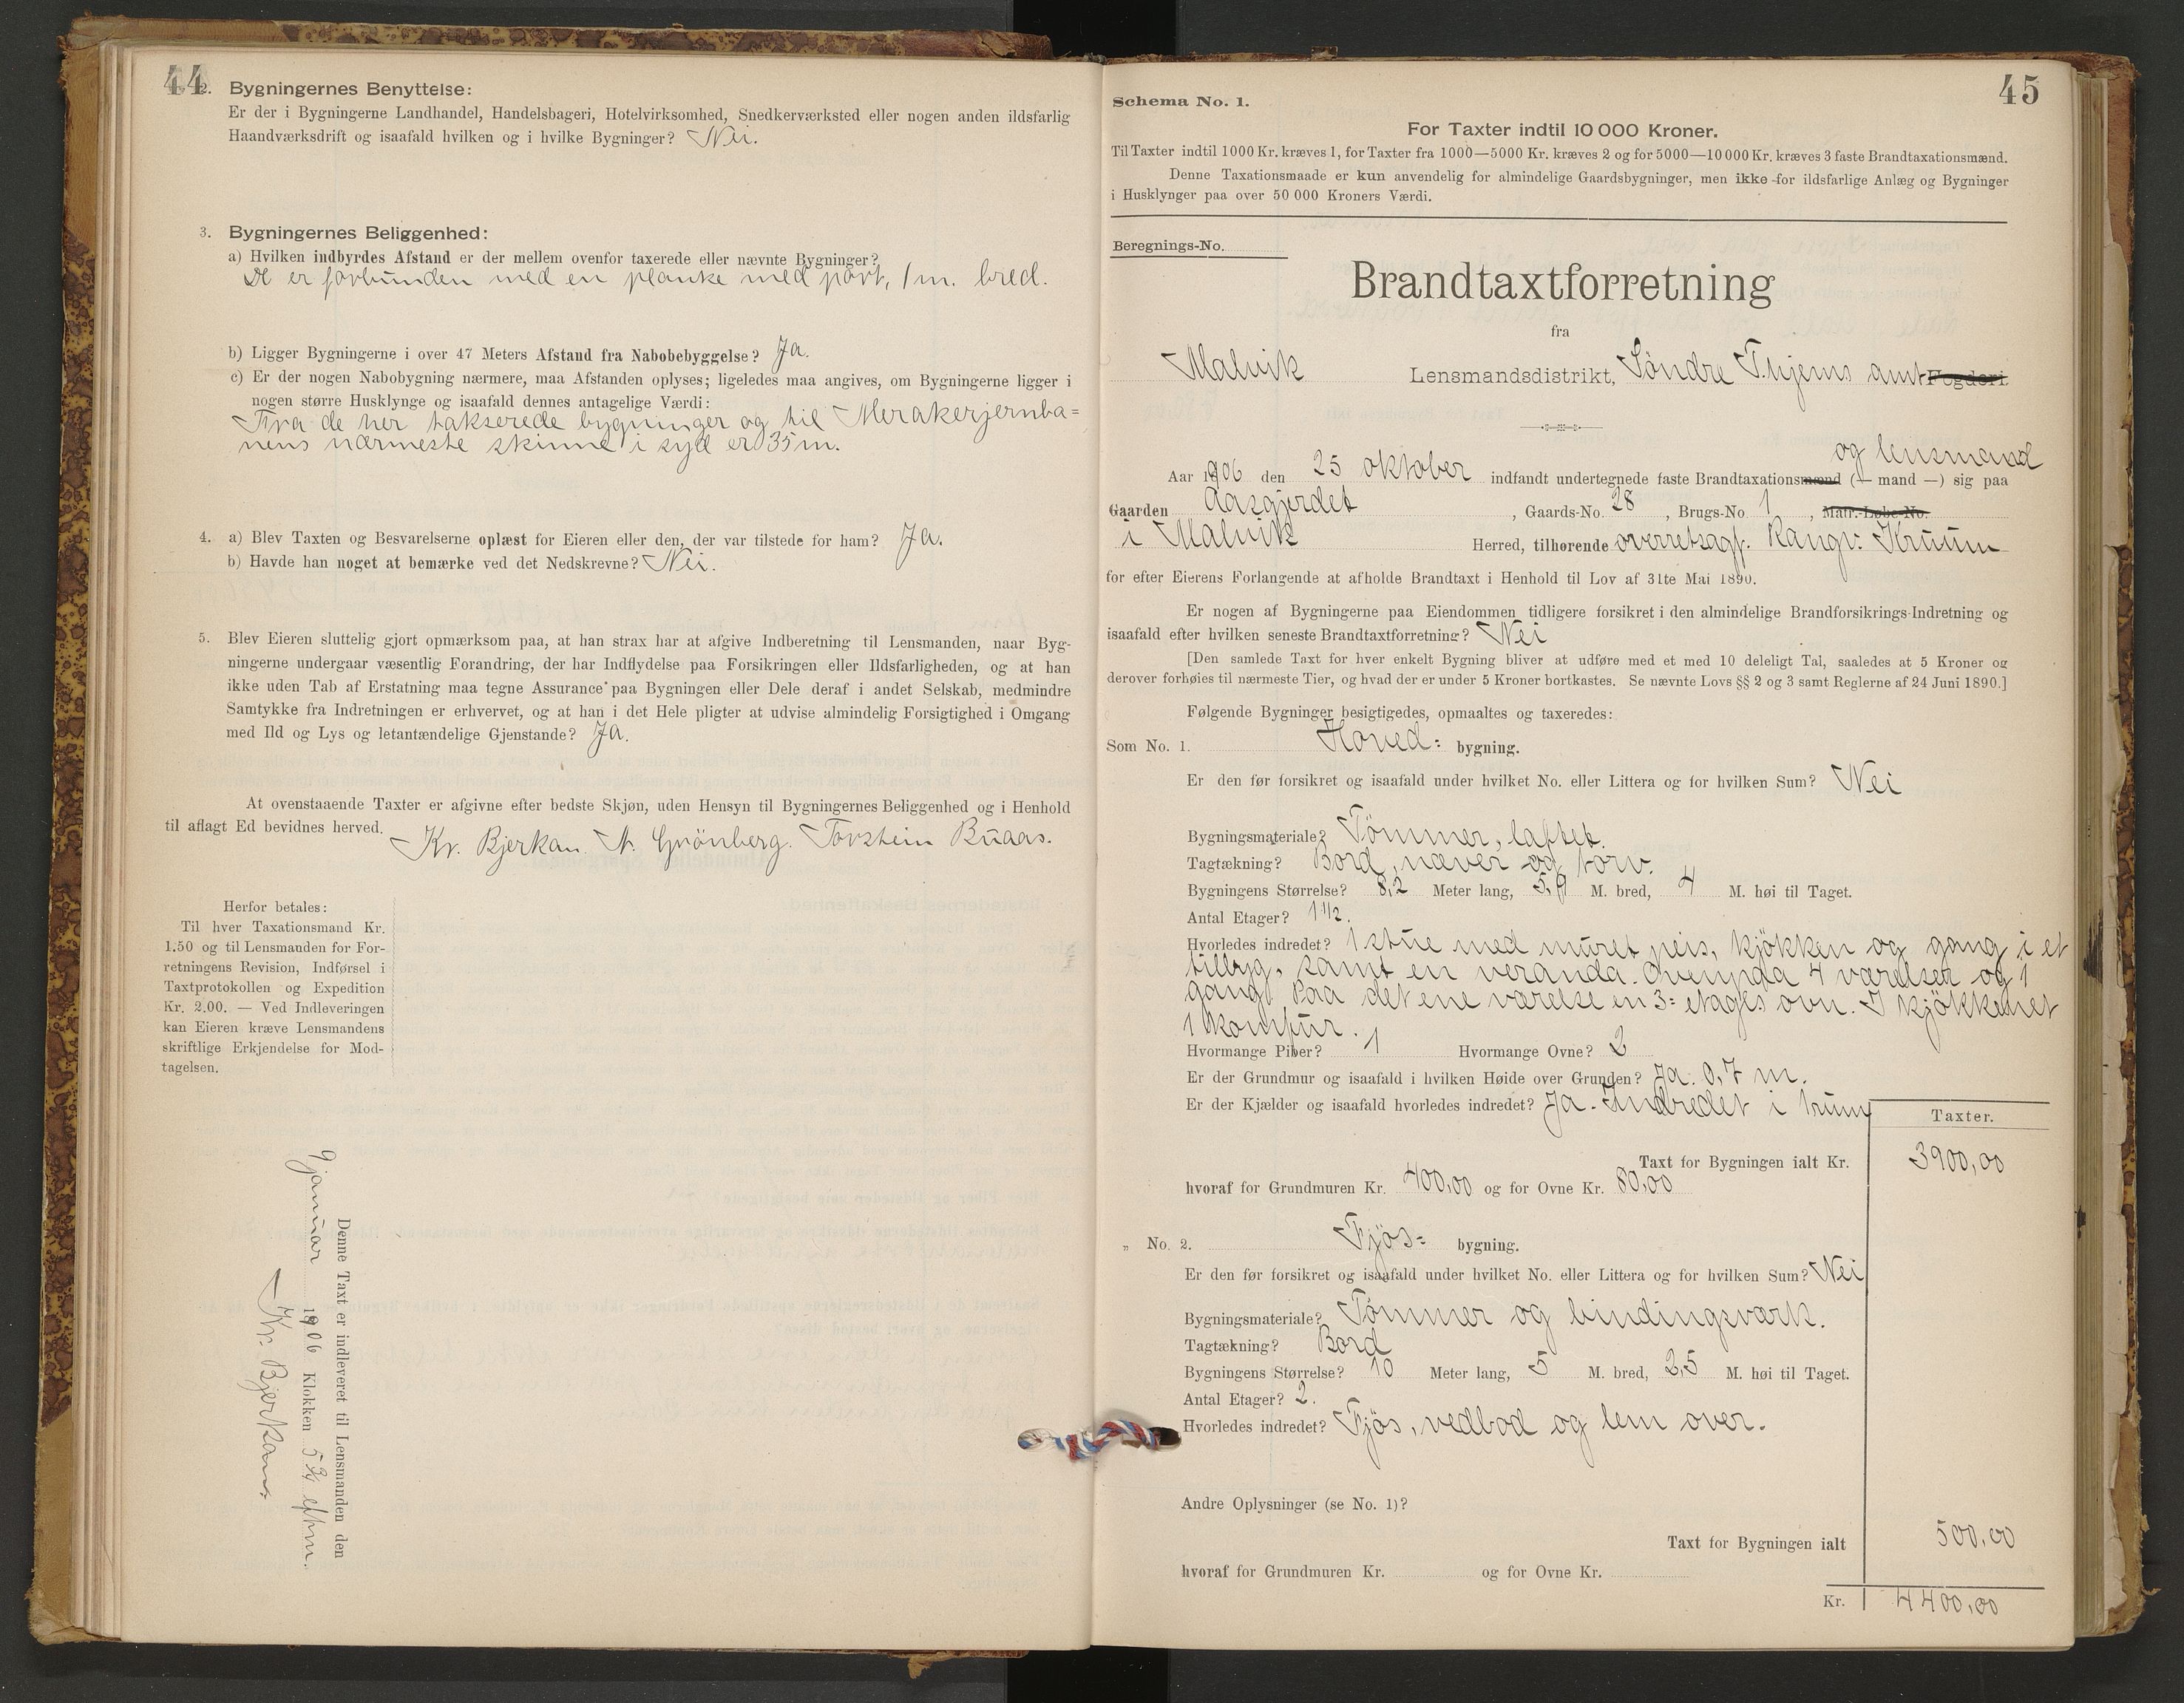 44
2. Bygningernes Benyttelse:
Er der i Bygningerne Landhandel, Handelsbageri, Hotelvirksomhed, Snedkerværksted eller nogen anden ildsfarlig
Haandværksdrift og isaafald hvilken og i hvilke Bygninger? Nei.
3. Bygningernes Beliggenhed:
a) Hvilken indbyrdes Afstand er der mellem ovenfor taxerede eller nævnte Bygninger?
De er forbunden med en planke med port, 1 m. bred.
b) Ligger Bygningerne i over 47 Meters Afstand fra Nabobebyggelse? Ja.
c) Er der nogen Nabobygning nærmere, maa Afstanden oplyses; ligeledes maa angives, om Bygningerne ligger i
nogen større Husklynge og isaafald dennes antagelige Værdi:
Fra de her takserede bygninger og til Merakerjernba=
nens nærmeste skinne i syd er 35 m.
4. a) Blev Taxten og Besvarelserne oplæst for Eieren eller den, der var tilstede for ham? Ja.
b) Havde han noget at bemærke ved det Nedskrevne? Nei.
5. Blev Eieren sluttelig gjort opmærksom paa, at han strax har at afgive Indberetning til Lensmanden, naar Byg-
ningerne undergaar væsentlig Forandring, der har Indflydelse paa Forsikringen eller Ildsfarligheden, og at han
ikke uden Tab af Erstatning maa tegne Assurance paa Bygningen eller Dele deraf i andet Selskab, medmindre
Samtykke fra Indretningen er erhvervet, og at han i det Hele pligter at udvise almindelig Forsigtighed i Omgang
med Ild og Lys og letantændelige Gjenstande? Ja.
At ovenstaaende Taxter er afgivne efter bedste Skjøn, uden Hensyn til Bygningernes Beliggenhed og i Henhold
til aflagt Ed bevidnes herved.
Kr. Bjerkan. N. Grönberg. Torstein Buaas.
Herfor betales:
Til hver Taxationsmand Kr.
1.50 og til Lensmanden for For-
retningens Revision, Indførsel i
Taxtprotokollen og Expedition
Kr. 2.00. — Ved Indleveringen
kan Eieren kræve Lensmandens
skriftlige Erkjendelse for Mod-
tagelsen.
Denne Taxt er indleveret til Lensmanden den
9 januar 1906 Klokken 5 3/4 eftm.
Kr. Bjerkan.
45
Schema No. 1.
For Taxter indtil 10 000 Kroner.
Til Taxter indtil 1000 Kr. kræves 1, for Taxter fra 1000—5000 Kr. kræves 2 og for 5000—10 000 Kr. kræves 3 faste Brandtaxationsmænd.
Denne Taxationsmaade er kun anvendelig for almindelige Gaardsbygninger, men ikke for ildsfarlige Anlæg og Bygninger
i Husklynger paa over 50 000 Kroners Værdi.
Beregnings-No.
Brandtaxtforretning
fra
Malvik Lensmandsdistrikt, Söndre T.hjems amt Fogderi.
og lensmand
Aar 1906 den 25 oktober indfandt undertegnede faste Brandtaxationsmænd (— mand —) sig paa
Gaarden Aasgjerdet, Gaards-No. 28, Brugs-No. 1, Matr.-Løbe-No.
i Malvik Herred, tilhørende overretsagf. Rangv. Kruum
for efter Eierens Forlangende at afholde Brandtaxt i Henhold til Lov af 31te Mai 1890.
Er nogen af Bygningerne paa Eiendommen tidligere forsikret i den almindelige Brandforsikrings-Indretning og
isaafald efter hvilken seneste Brandtaxtforretning? Nei
[Den samlede Taxt for hver enkelt Bygning bliver at udføre med et med 10 deleligt Tal, saaledes at 5 Kroner og
derover forhøies til nærmeste Tier, og hvad der er under 5 Kroner bortkastes. Se nævnte Lovs §§ 2 og 3 samt Reglerne af 24 Juni 1890.]
Følgende Bygninger besigtigedes, opmaaltes og taxeredes:
Som No. 1. Hoved= bygning.
Er den før forsikret og isaafald under hvilket No. eller Littera og for hvilken Sum? Nei
Bygningsmateriale? Tömmer, laftet.
Tagtækning? Bord, næver og torv.
Bygningens Størrelse? 8,2 Meter lang, 5,9 M. bred, 4 M. høi til Taget.
Antal Etager? 1 1/2.
Hvorledes indredet? 1 stue med muret peis, kjökken og gang i et
tilbyg, samt en veranda. Ovenpaa 4 værelser og 1
gang. Paa det ene værelse en 3= etages ovn. I kjökkenet
1 komfur.
Hvormange Piber? 1 Hvormange Ovne? 2
Er der Grundmur og isaafald i hvilken Høide over Grunden? Ja. 0,7 m.
Er der Kjælder og isaafald hvorledes indredet? Ja. Indredet i 1 rum
Taxter.
Taxt for Bygningen ialt Kr. 3900,00
hvoraf for Grundmuren Kr. 400,00 og for Ovne Kr. 80,00
„ No. 2. Fjös= bygning.
Er den før forsikret og isaafald under hvilket No. eller Littera og for hvilken Sum? Nei
Bygningsmateriale? Tömmer og bindingsværk.
Tagtækning? Bord
Bygningens Størrelse? 10 Meter lang, 5 M. bred, 2,5 M. høi til Taget.
Antal Etager? 2.
Hvorledes indredet? Fjös, vedbod og lem over.
Andre Oplysninger (se No. 1)?
Taxt for Bygningen ialt 500,00
hvoraf for Grundmuren Kr. og for Ovne Kr.
Kr. 4400,00